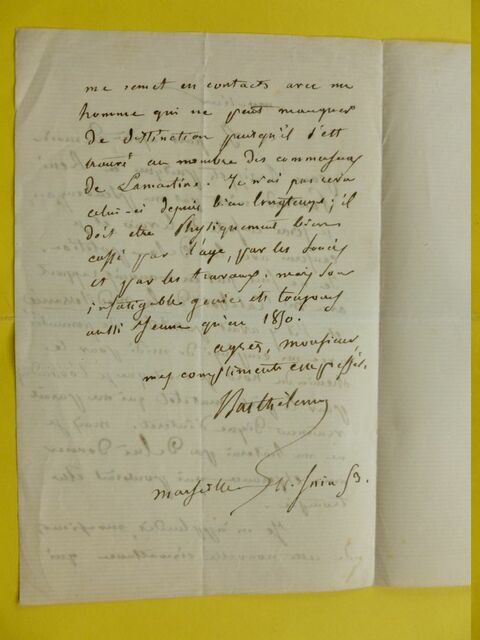 me remet en contacts avec un
homme qui ne peut manquer
de distinction puisqu'il s'est
trouvé au nombre des
de Lamartine. Je n'ai pas revu
celui-ci depuis bien longtemps; il
doit etre Physiquement bien
cassé par l'age, par les soucis
et par les travaux; mais son
infatigable genie est toujours
aussi jeune qu'en 1830.
agréés, monsieur,
mes compliments empressés.
Barthélemy
marseille 11. juin 53.